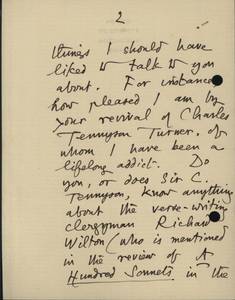 2
things I should have
liked to talk to you
about. For instance
how pleased I am by
your revival of Charles
Tennyson Turner, of
whom I have been a
lifelong addict. Do
you, or does Sir C.
Tennyson, know anything
about the verse-writing
clergyman Richard
Wilton (who is mentioned
in the review of A
Hundred Sonnets in the